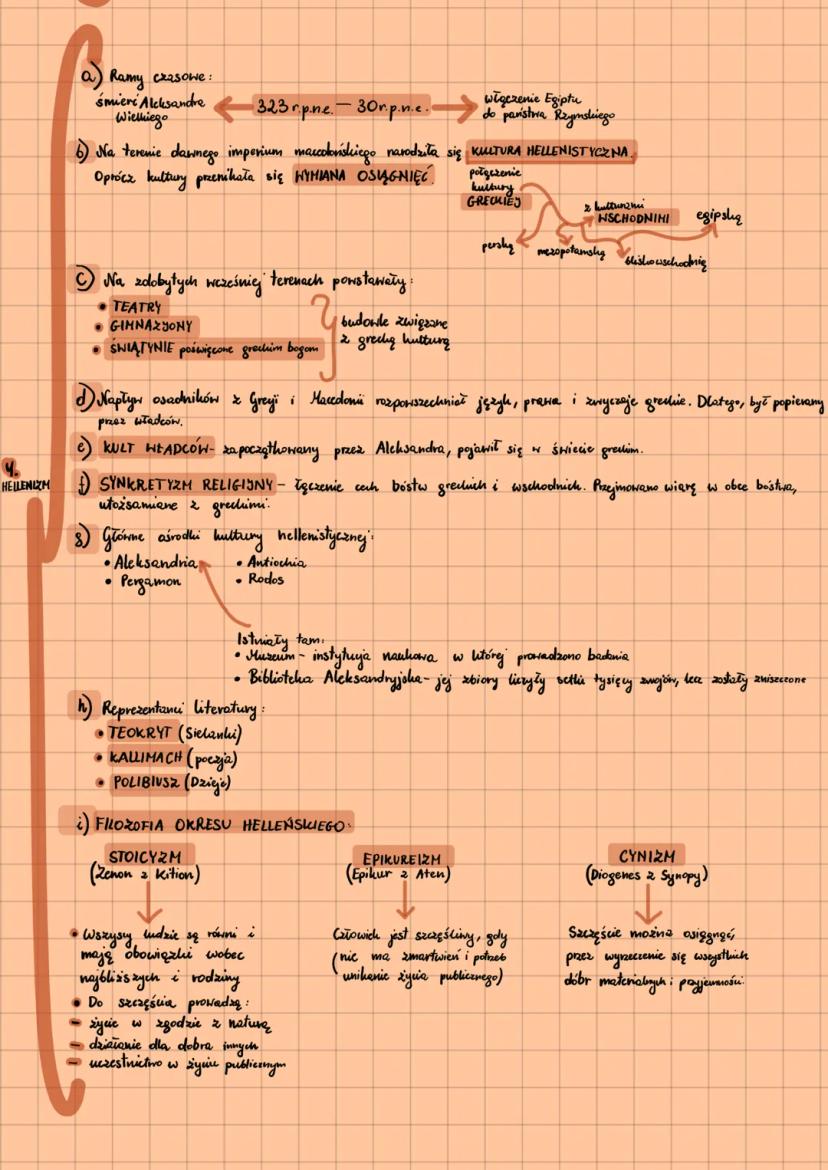 a) Ramy czasowe:
śmierć Aleksandra Wielkiego ← 323 r.p.n.e. — 30 r.p.n.e. → włączenie Egiptu do państwa Rzymskiego
b) Na terenie dawnego imperium macedońskiego narodziła się KULTURA HELLENISTYCZNA.
Oprócz kultury przenikała się WYMIANA OSIĄGNIĘĆ.
połączenie
kultury
GRECKIEJ
z kulturami
WSCHODNIMI
egipską
perską
mezopotamską
bliskowschodnią
c) Na zdobytych wcześniej terenach powstawały:
• TEATRY
• GIMNAZJONY
• ŚWIĄTYNIE poświęcone greckim bogom
budowle związane
z grecką kulturą
d) Napływ osadników z Grecji i Macedonii rozpowszechniał język, prawa i zwyczaje greckie. Dlatego, był popierany
przez władców.
4.
HELLENIZM
e) KULT WŁADCÓW- zapoczątkowany przez Aleksandra, pojawił się w świecie greckim.
f) SYNKRETYZM RELIGIJNY - łączenie cech bóstw greckich i wschodnich. Przejmowano wiarę w obce bóstwa,
utożsamiane z greckimi.
g) Główne ośrodki kultury hellenistycznej:
• Aleksandria • Antiochia
• Pergamon • Rodos
Istniały tam:
• Muzeum - instytucja naukowa w której prowadzono badania
• Biblioteka Aleksandryjska- jej zbiory liczyły setki tysięcy zwojów, lecz zostały zniszczone
h) Reprezentanci literatury:
• TEOKRYT (Sielanki)
• KALLIMACH (poezja)
• POLIBIUSZ (Dzieje)
i) FILOZOFIA OKRESU HELLEŃSKIEGO:
STOICYZM
(Zenon z Kition)
• Wszyscy ludzie są równi i
mają obowiązki wobec
najbliższych i rodziny
• Do szczęścia prowadzą:
- życie w zgodzie z naturą
- działanie dla dobra innych
- uczestnictwo w życiu publicznym
EPIKUREIZM
(Epikur z Aten)
Człowiek jest szczęśliwy, gdy
(nic ma zmartwień i potrzeb
unikanie życia publicznego)
CYNIZM
(Diogenes z Synopy)
Szczęście można osiągnąć,
przez wyrzeczenie się wszystkich
dóbr materialnych i przyjemności.